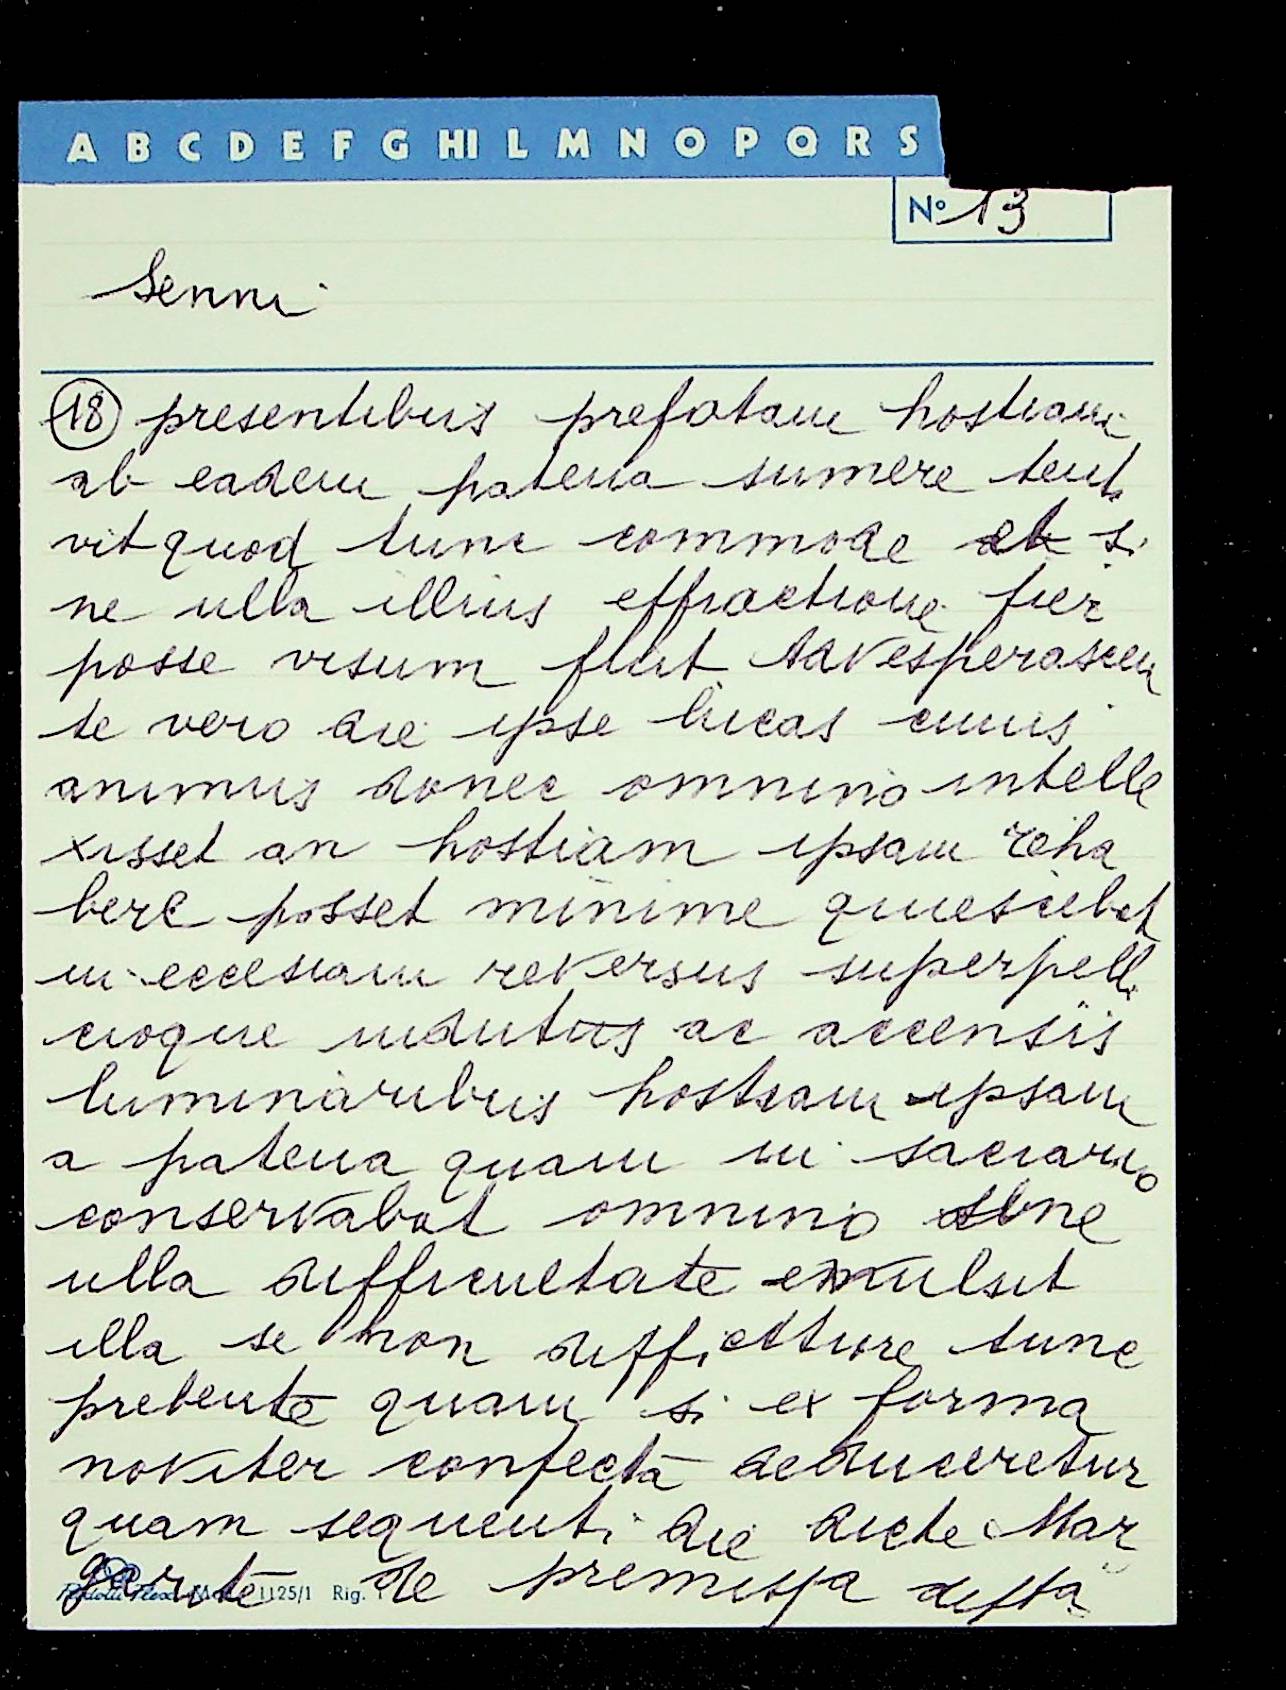 A B C D E F G HI L M N O P Q R S
Nº 13
Senni
18 presentibus prefatam hostiam
ab eadem patena sumere tent
vit quod tunc commode et si
ne ulla illius effractione fier
posse visum fuit advesperascen
te vero die ipse lucas cuius
animus donec omnino intelle
xisset an hostiam ipsam reha
bere posset minime quiescebat
in ecclesiam reversus superpelli
cioque indutus ac accensis
luminaribus hostiam ipsam
a patena quam in sacrario
conservabat omnino sine
ulla difficultate emulsit
illa se non difficiliore tunc
prebente quam si ex forma
noviter confecta deduceretur
quam sequenti die dicte Mar
garite de premissa
1125/1 Rig.